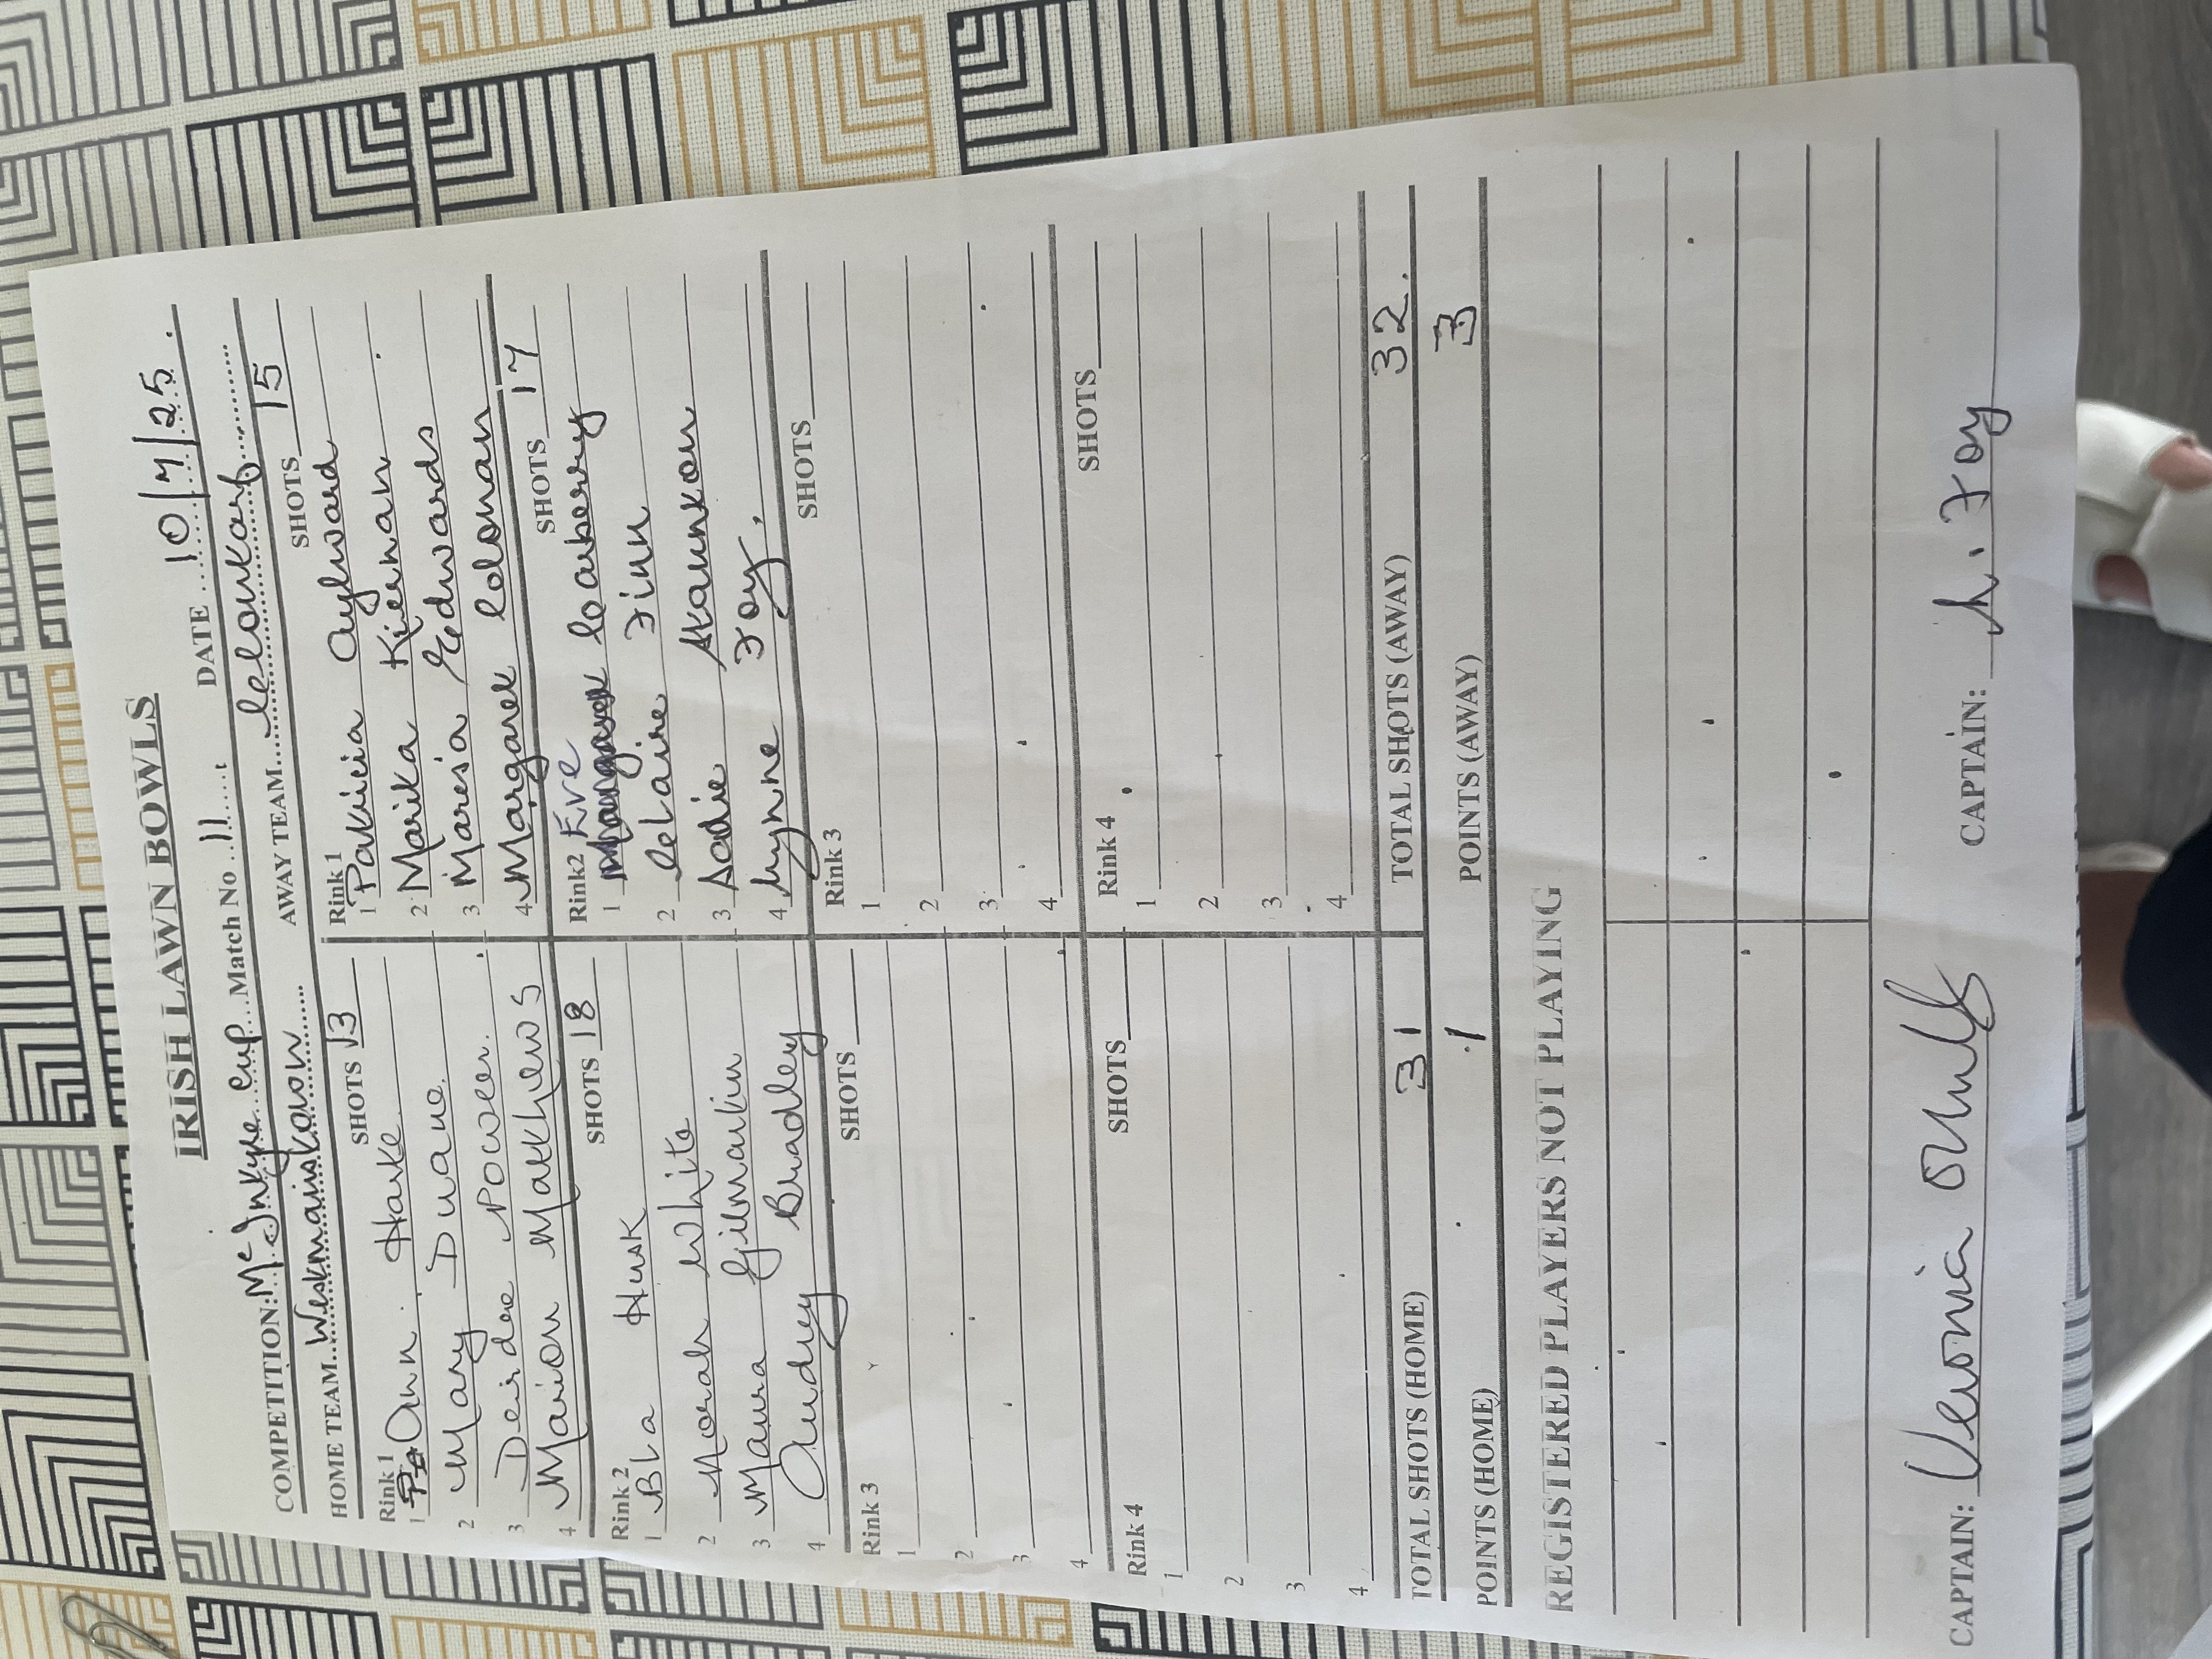 IRISH LAWN BOWLS
COMPETITION: Mc Intyre Cup Match No 11 DATE 10/7/25.
HOME TEAM Westmanstown AWAY TEAM Clontarf
SHOTS 13 SHOTS 15
Rink 1 Rink 1
1 Ann Harte 1 Patricia Aylward
2 Mary Duane 2 Marika Kiernan
3 Deirdre Power 3 Maresia Edwards
4 Marion Matthews 4 Margaret Colonan
SHOTS 18 SHOTS 17
Rink 2 Rink2
1 Bla Husk 1 Eve Carberry
2 Norah White 2 Claire Finn
3 Maura Gilmartin 3 Addie Staunton
4 Audrey Bradley 4 Lynne Foy.
SHOTS SHOTS
Rink 3 Rink 3
1 1
2 2
3 3
4 4
SHOTS SHOTS
Rink 4 Rink 4
1 1
2 2
3 3
4 4
TOTAL SHOTS (HOME) 31 TOTAL SHOTS (AWAY) 32.
POINTS (HOME) 1 POINTS (AWAY) 3
REGISTERED PLAYERS NOT PLAYING
CAPTAIN: CAPTAIN: L. Foy